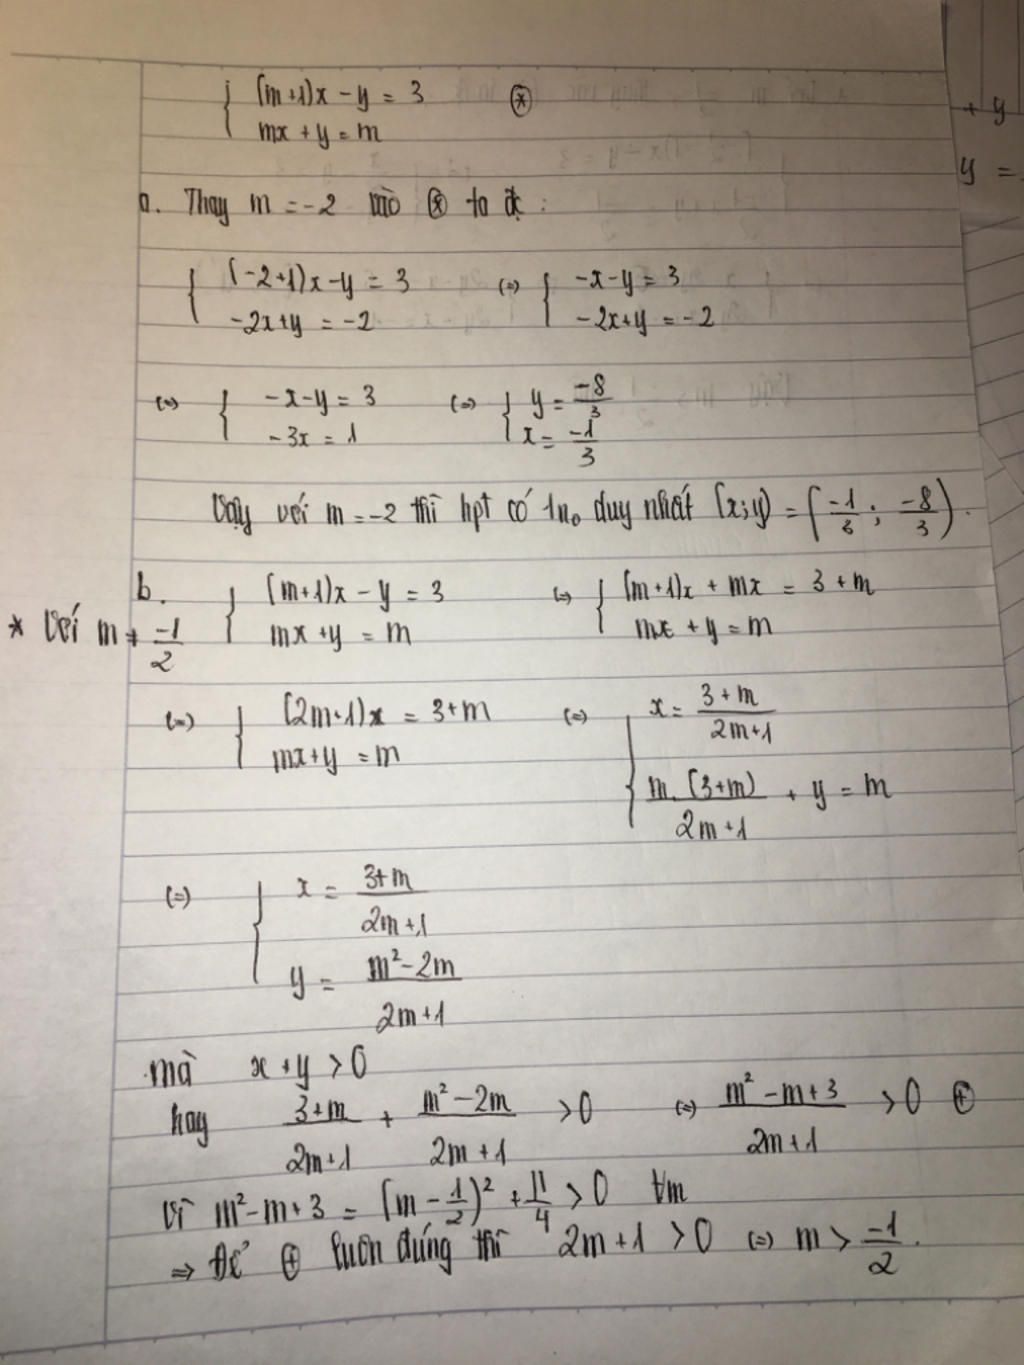 { (m+1)x - y = 3 ⊛
mx + y = m
+ y
y =
a. Thay m = -2 vào ⊛ ta đc :
{ (-2+1)x - y = 3 (=) { -x - y = 3
-2x + y = -2 -2x + y = -2
(=) { -x - y = 3 (=) { y = -8/3
-3x = 1 x = -1/3
Vậy với m = -2 thì hpt có 1no duy nhất (x;y) = (-1/3 ; -8/3).
b. { (m+1)x - y = 3 (=) { (m+1)x + mx = 3 + m
* Với m ≠ -1/2 mx + y = m mx + y = m
(=) { (2m+1)x = 3+m (=) { x = (3+m)/(2m+1)
mx + y = m m.(3+m)/(2m+1) + y = m
(=) { x = (3+m)/(2m+1)
y = (m² - 2m)/(2m+1)
mà x + y > 0
hay (3+m)/(2m+1) + (m² - 2m)/(2m+1) > 0 (=) (m² - m + 3)/(2m+1) > 0 ⊕
Vì m² - m + 3 = (m - 1/2)² + 11/4 > 0 ∀m
⇒ Để ⊕ luôn đúng thì 2m + 1 > 0 (=) m > -1/2.